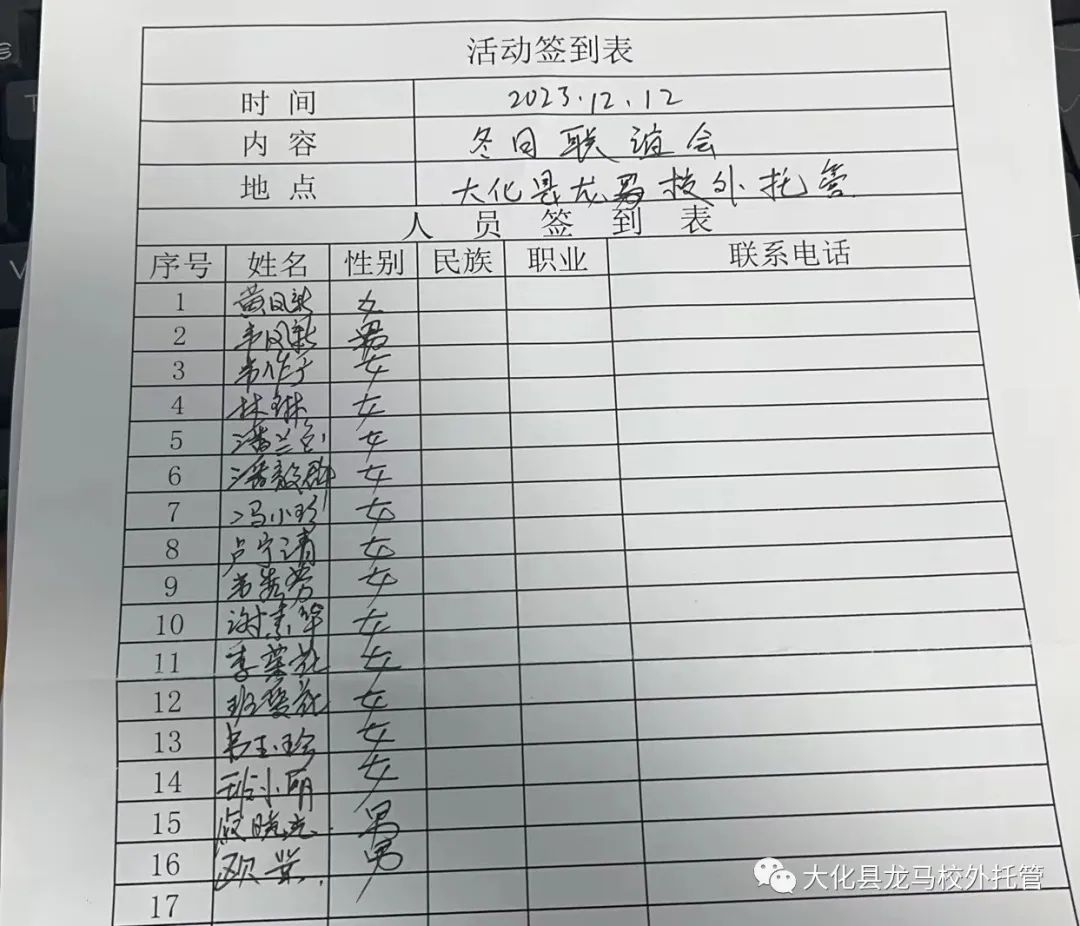 活动签到表
时间 2023.12.12
内容 冬日联谊会
地点 大化县龙马校外托管
人员签到表
序号 姓名 性别 民族 职业 联系电话
1 黄凤新 女
2 韦凤新 男
3 女
4 林琳 女
5 潘兰 女
6 潘毅群 女
7 冯小珍 女
8 卢宁清 女
9 韦秀芳 女
10 谢素华 女
11 女
12 班爱花 女
13 韦玉珍 女
14 小丽 女
15 晓 男
16 欧业 男
17
大化县龙马校外托管